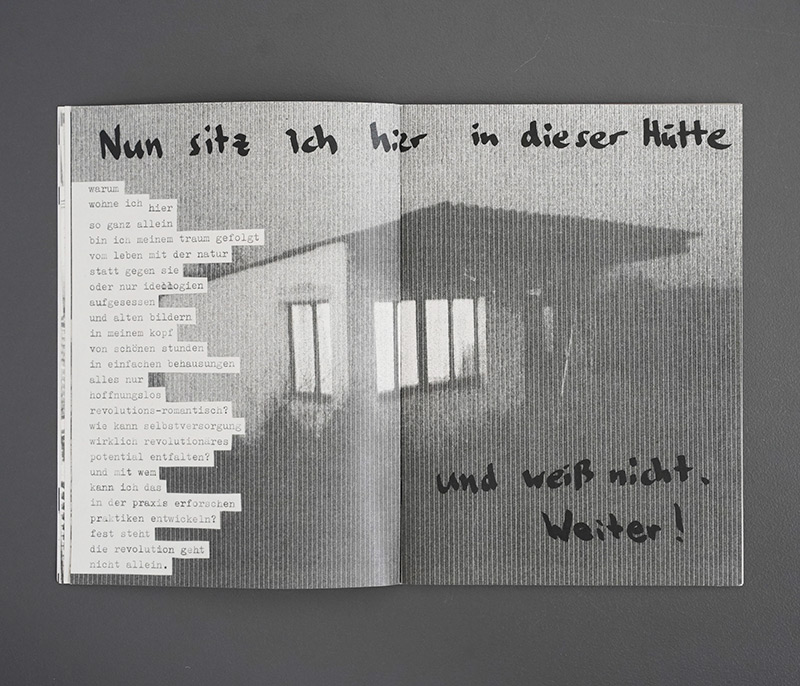 Nun sitz ich hier in dieser Hütte
warum
wohne ich hier
so ganz allein
bin ich meinem traum gefolgt
vom leben mit der natur
statt gegen sie
oder nur ideologien
aufgesessen
und alten bildern
in meinem kopf
von schönen stunden
in einfachen behausungen
alles nur
hoffnungslos
revolutions-romantisch?
wie kann selbstversorgung
wirklich revolutionäres
potential entfalten?
und mit wem
kann ich das
in der praxis erforschen
praktiken entwickeln?
fest steht
die revolution geht
nicht allein.
und weiß nicht.
Weiter!